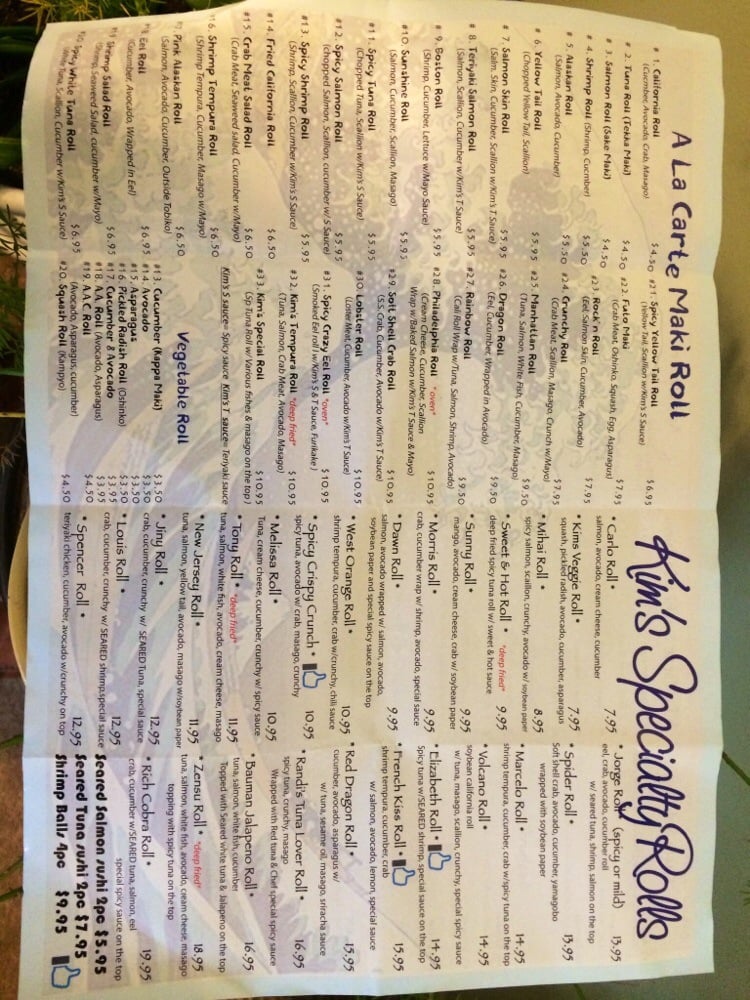 A La Carte Maki Roll
# 1. California Roll $4.50
(Cucumber, Avocado, Crab, Masago)
# 2. Tuna Roll (Tekka Maki) $4.50
# 3. Salmon Roll (Sake Maki) $4.50
# 4. Shrimp Roll (Shrimp, Cucmber) $5.50
# 5. Alaskan Roll $5.50
(Salmon, Avocado, Cucumber)
# 6. Yellow Tail Roll $5.95
(Chopped Yellow Tail, Scallion)
# 7. Salmon Skin Roll $5.95
(Salm. Skin, Cucumber, Scallion w/Kim's T Sauce)
# 8. Teriyaki Salmon Roll $5.95
(Salmon, Scallion, Cucumber w/Kim's T Sauce)
# 9. Boston Roll $5.95
(Shrimp, Cucumber, Lettuce w/Mayo Sauce)
#10. Sunshine Roll $5.95
(Salmon, Cucumber, Scallion, Masago)
#11. Spicy Tuna Roll $5.95
(Chopped Tuna, Scallion w/Kim's S Sauce)
#12. Spicy Salmon Roll $5.95
(chopped Salmon, Scallion, cucumber w/S Sauce)
#13. Spicy Shrimp Roll $5.95
(Shrimp, Scallion, Cucumber w/Kim's S Sauce)
#14. Fried California Roll $6.50
#15. Crab Meat Salad Roll $6.50
(Crab Meat, Seaweed salad, Cucumber w/Mayo)
#16. Shrimp Tempura Roll $6.50
(Shrimp Tempura, Cucumber, Masago w/Mayo)
Pink Alaskan Roll $6.50
(Salmon, Avocado, Cucumber, Outside Tobiko)
Eel Roll $6.95
(Cucumber, Avocado, Wrapped in Eel)
Shrimp Salad Roll $6.95
(Shrimp, Seaweed Salad, cucumber w/Mayo)
Spicy White Tuna Roll $6.95
White Tuna, Scallion, Cucumber w/Kim's S Sauce)
#21. Spicy Yellow Tail Roll $6.95
(Yellow Tail, Scallion w/Kim's S Sauce)
#22. Futo Maki $7.95
(Crab Meat, Oshinko, Squash, Egg, Asparagus)
#23. Rock'n Roll $7.95
(Eel, Salmon Skin, Cucumber, Avocado)
#24. Crunchy Roll $7.95
(Crab Meat, Scallion, Masago, Crunch w/Mayo)
#25. Manhattan Roll $9.50
(Tuna, Salmon, White Fish, Cucumber, Masago)
#26. Dragon Roll $9.50
(Eel, Cucumber, Wrapped in Avocado)
#27. Rainbow Roll $9.50
(Cali Roll Wrap w/Tuna, Salmon, Shrimp, Avocado)
#28. Philadelphia Roll *oven* $10.95
(Cream Cheese, Cucumber, Scallion
Wrap w/Baked Salmon w/Kim's T Sauce & Mayo)
#29. Soft Shell Crab Roll $10.95
(S.S. Crab, Cucumber, Avocado w/Kim's T Sauce)
#30. Lobster Roll $10.95
(Lobster Meat, Cucumber, Avocado w/Kim's T Sauce)
#31. Spicy Crazy Eel Roll *oven* $10.95
(Smoked Eel roll w/Kim's S & T Sauce, Furikake)
#32. Kim's Tempura Roll *deep fried* $10.95
(Tuna, Salmon, Crab Meat, Avocado, Masago)
#33. Kim's Special Roll $10.95
(Sp Tuna Roll w/ Various fishes & masago on the top)
Kim's S sauce= Spicy sauce Kim's T sauce= Teriyaki sauce
Vegetable Roll
#13. Cucumber (Kappa Maki) $3.50
#14. Avocado $3.50
#15. Asparagus $3.50
#16. Pickled Radish Roll (Oshinko) $3.50
#17. Cucumber & Avocado $3.95
#18. A.A. Roll (Avocado, Asparagus) $3.95
#19. A.A.C Roll $4.50
(Avocado, Asparagus, cucumber)
#20. Squash Roll (Kampyo) $4.50
Kim's Specialty Rolls
* Carlo Roll * 7.95
salmon, avocado, cream cheese, cucumber
* Kims Veggie Roll * 7.95
squash, pickled radish, avocado, cucumber, asparagus
* Mihai Roll * 8.95
spicy salmon, scallion, crunchy, avocado w/ soybean paper
* Sweet & Hot Roll * *deep fried* 9.95
deep fried spicy tuna roll w/ sweet & hot sauce
* Sunny Roll * 9.95
mango, avocado, cream cheese, crab w/ soybean paper
* Morris Roll * 9.95
crab, cucumber wrap w/ shrimp, avocado, special sauce
* Dawn Roll * 9.95
salmon, avocado wrapped w/ salmon, avocado,
soybean paper and special spicy sauce on the top
* West Orange Roll * 10.95
shrimp tempura, cucumber, crab w/crunchy, chili sauce
* Spicy Crispy Crunch * 10.95
spicy tuna, avocado w/ crab, masago, crunchy
* Melissa Roll * 10.95
tuna, cream cheese, cucumber, crunchy w/ spicy sauce
* Tony Roll * *deep fried* 11.95
tuna, salmon, white fish, avocado, cream cheese, masago
* New Jersey Roll * 11.95
tuna, salmon, yellow tail, avocado, masago w/soybean paper
* Jiny Roll * 12.95
crab, cucumber, crunchy w/ SEARED tuna, special sauce
* Louis Roll * 12.95
crab, cucumber, crunchy w/ SEARED shrimp, special sauce
* Spencer Roll * 12.95
teriyaki chicken, cucumber, avocado w/crunchy on top
* Jorge Roll * (spicy or mild) 13.95
eel, crab, avocado, cucumber roll
w/ seared tuna, shrimp, salmon on the top
* Spider Roll * 13.95
Soft shell crab, avocado, cucumber, yamagobo
wrapped with soybean paper
* Marcelo Roll * 14.95
shrimp tempura, cucumber, crab w/spicy tuna on the top
* Volcano Roll * 14.95
soybean california roll
w/ tuna, masago, scallion, crunchy, special spicy sauce
* Elizabeth Roll * 14.95
Spicy tuna w/SEARED shrimp, special sauce on the top
* French Kiss Roll * 15.95
shrimp tempura, cucumber, crab
w/ salmon, avocado, lemon, special sauce
* Red Dragon Roll * 15.95
cucumber, avocado, asparagus w/
w/ tuna, sesame oil, masago, sriracha sauce
* Randi's Tuna Lover Roll * 16.95
spicy tuna, crunchy, masago
Wrapped with Red tuna & Chef special spicy sauce
* Bauman Jalapeno Roll * 16.95
tuna, salmon, white fish, cucumber
Topped with Seared White tuna & Jalapeno on the top
* Zensu Roll * *deep fried* 18.95
tuna, salmon, white fish, avocado, cream cheese, masago
topping with spicy tuna on the top
* Rich Cobra Roll * 19.95
crab, cucumber w/SEARED tuna, salmon, eel
special spicy sauce on the top
Seared Salmon sushi 2pc $5.95
Seared Tuna sushi 2pc $7.95
Shrimp Balls 4pc $9.95